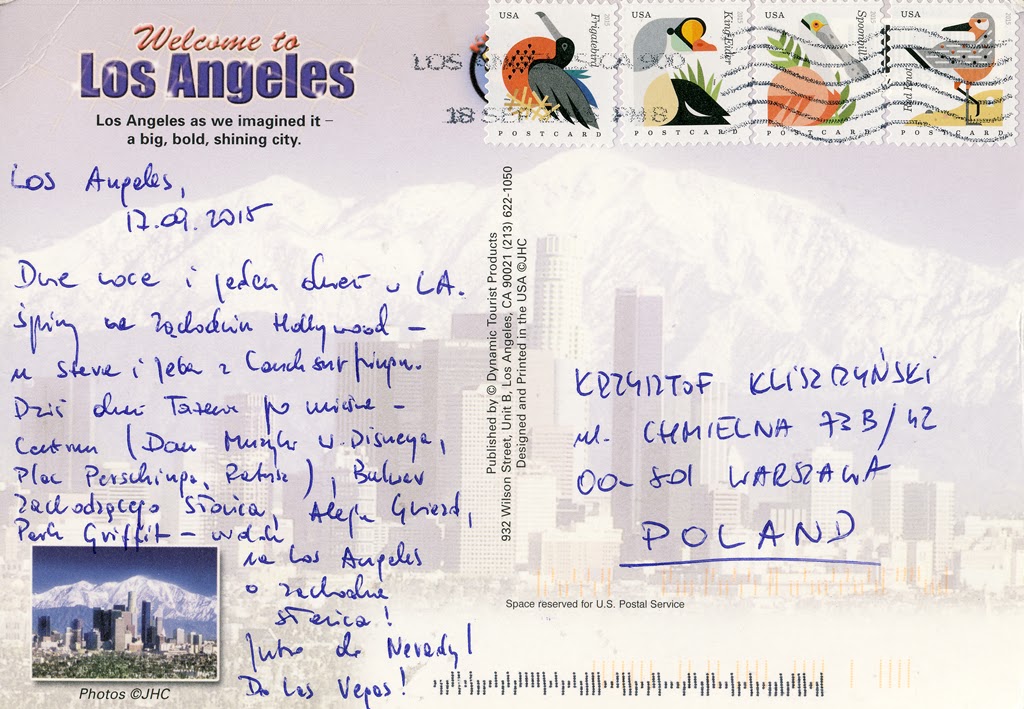 Welcome to
Los Angeles
Los Angeles as we imagined it –
a big, bold, shining city.
USA
2015
Frigatebird
POSTCARD
USA
2015
King Eider
POSTCARD
USA
2015
Spoonbill
POSTCARD
USA
2015
POSTCARD
LOS ANGELES CA 900
18 SEP PM 8
Los Angeles,
17.09.2015
Dwie noce i jeden dzień w LA.
Śpimy we Zachodnim Hollywood –
u Steve i Jeba z Couchsurfingu.
Dziś dzień po mieście –
Centrum (Dom Muzyki W. Disneya,
Plac Pershinga, Ratusz), Bulwar
Zachodzącego Słońca, Aleja Gwiazd,
Park Griffit – widok
na Los Angeles
o zachodzie
słońca!
Jutro do Nevady!
Do Las Vegas!
Published by © Dynamic Tourist Products
932 Wilson Street, Unit B, Los Angeles, CA 90021 (213) 622-1050
Designed and Printed in the USA ©JHC
KRZYSZTOF KLISZCZYŃSKI
ul. CHMIELNA 73B/42
00-801 WARSZAWA
POLAND
Space reserved for U.S. Postal Service
Photos ©JHC